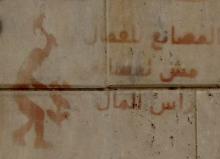 المصانع للعمال
مش لعصابة
راس المال